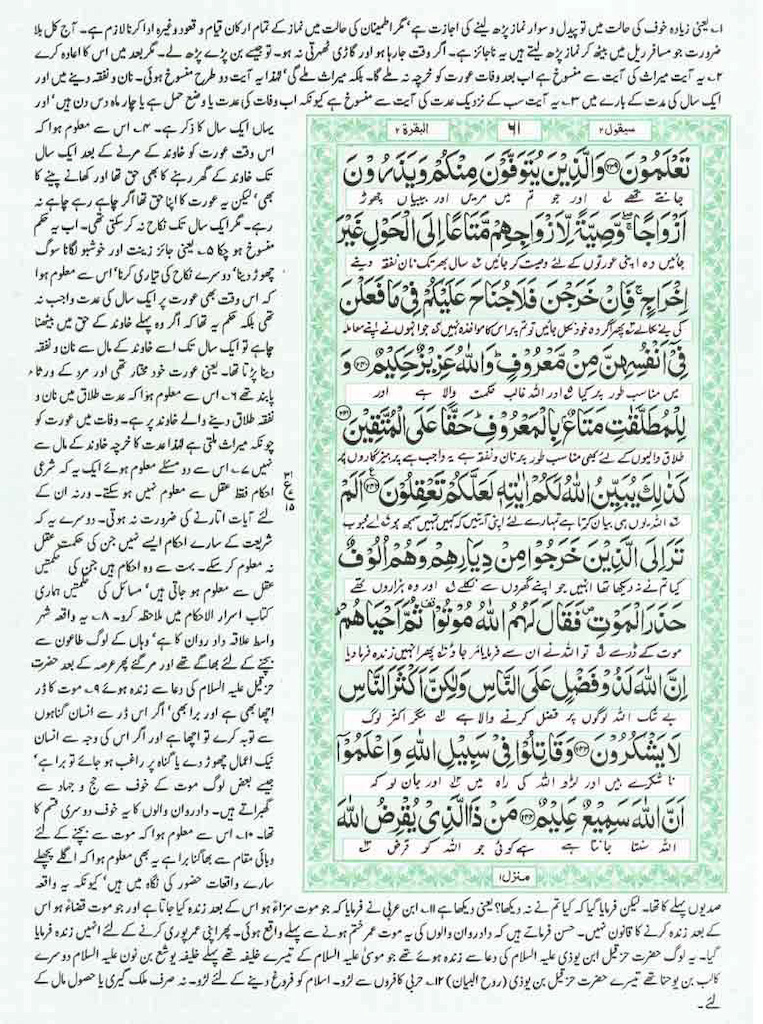 ۱۔ یعنی زیادہ خوف کی حالت میں تو پیدل و سوار نماز پڑھ لینے کی اجازت ہے' مگر اطمینان کی حالت میں نماز کے تمام ارکان قیام و قعود وغیرہ ادا کرنا لازم ہے۔ آج کل بلا
ضرورت جو مسافر ریل میں بیٹھ کر نماز پڑھ لیتے ہیں یہ ناجائز ہے۔ اگر وقت جا رہا ہو اور گاڑی ٹھہرتی نہ ہو۔ تو جیسے بن پڑے پڑھ لے۔ مگر بعد میں اس کا اعادہ کرے
۲۔ یہ آیت میراث کی آیت سے منسوخ ہے اب بعد وفات عورت کو خرچہ نہ ملے گا۔ بلکہ میراث ملے گی' لہٰذا یہ آیت دو طرح منسوخ ہوئی۔ نان و نفقہ دینے میں اور
ایک سال کی عدت کے بارے میں ۳۔ یہ آیت سب کے نزدیک عدت کی آیت سے منسوخ ہے کیونکہ اب وفات کی عدت یا وضع حمل ہے یا چار ماہ دس دن ہیں' اور
یہاں ایک سال کا ذکر ہے۔ ۴۔ اس سے معلوم ہوا کہ
اس وقت عورت کو خاوند کے مرنے کے بعد ایک سال
تک خاوند کے گھر رہنے کا بھی حق تھا اور کھانے پینے کا
بھی' لیکن یہ عورت کا اپنا حق تھا اگر چاہے رہے چاہے نہ
رہے۔ مگر ایک سال تک نکاح نہ کر سکتی تھی۔ اب یہ حکم
منسوخ ہو چکا ۵۔ یعنی جائز زینت اور خوشبو لگانا سوگ
چھوڑ دینا' دوسرے نکاح کی تیاری کرنا' اس سے معلوم ہوا
کہ اس وقت بھی عورت پر ایک سال کی عدت واجب نہ
تھی بلکہ حکم یہ تھا کہ اگر وہ پہلے خاوند کے حق میں بیٹھنا
چاہے تو ایک سال تک اسے خاوند کے مال سے نان و نفقہ
دینا پڑتا تھا۔ یعنی عورت خود مختار تھی اور مرد کے ورثاء
پابند تھے ۶۔ اس سے معلوم ہوا کہ عدت طلاق میں نان و
نفقہ طلاق دینے والے خاوند پر ہے۔ وفات میں عورت کو
چونکہ میراث ملتی ہے لہٰذا عدت کا خرچہ خاوند کے مال سے
نہیں ۷۔ اس سے دو مسئلے معلوم ہوئے ایک یہ کہ شرعی
احکام فقط عقل سے معلوم نہیں ہو سکتے۔ ورنہ ان کے
لئے آیات اتارنے کی ضرورت نہ ہوتی۔ دوسرے یہ کہ
شریعت کے سارے احکام ایسے نہیں جن کی حکمت عقل
نہ معلوم کر سکے۔ بہت سے وہ احکام ہیں جن کی حکمتیں
عقل سے معلوم ہو جاتی ہیں' مسائل کی حکمتیں ہماری
کتاب اسرار الاحکام میں ملاحظہ کرو۔ ۸۔ یہ واقعہ شہر
واسط علاقہ داد روان کا ہے' وہاں کے لوگ طاعون سے
بچنے کے لئے بھاگے تھے اور مر گئے پھر عرصہ کے بعد حضرت
حزقیل علیہ السلام کی دعا سے زندہ ہوئے ۹۔ موت کا ڈر
اچھا بھی ہے اور برا بھی' اگر اس ڈر سے انسان گناہوں
سے توبہ کرے تو اچھا ہے اور اگر اس کی وجہ سے انسان
نیک اعمال چھوڑ دے یا گناہ پر راغب ہو جائے تو برا ہے'
جیسے بعض لوگ موت کے خوف سے حج و جہاد سے
گھبراتے ہیں۔ داد روان والوں کا یہ خوف دوسری قسم کا
تھا۔ ۱۰۔ اس سے معلوم ہوا کہ موت سے بچنے کے لئے
وبائی مقام سے بھاگنا برا ہے یہ بھی معلوم ہوا کہ اگلے پچھلے
سارے واقعات حضور کی نگاہ میں ہیں' کیونکہ یہ واقعہ
ع
۱۵
سیقول۲
۶۱
البقرۃ ۲
تَعْلَمُوْنَ ﴿۲۳۹﴾ وَالَّذِیْنَ یُتَوَفَّوْنَ مِنْكُمْ وَیَذَرُوْنَ
جانتے تھے اور جو تم میں مریں اور بیبیاں چھوڑ
اَزْوَاجًا ۖ وَّصِیَّةً لِّاَزْوَاجِهِمْ مَّتَاعًا اِلَی الْحَوْلِ غَیْرَ
جائیں وہ اپنی عورتوں کے لئے وصیت کر جائیں سال بھر تک نان نفقہ دینے
اِخْرَاجٍ ۚ فَاِنْ خَرَجْنَ فَلَا جُنَاحَ عَلَیْكُمْ فِیْ مَا فَعَلْنَ
کی بے نکالے پھر اگر وہ خود نکل جائیں تو تم پر اس کا مواخذہ نہیں جو انہوں نے اپنے معاملہ
فِیْۤ اَنْفُسِهِنَّ مِنْ مَّعْرُوْفٍ ؕ وَاللّٰهُ عَزِیْزٌ حَكِیْمٌ ﴿۲۴۰﴾ وَ
میں مناسب طور پر کیا اور اللہ غالب حکمت والا ہے اور
لِلْمُطَلَّقٰتِ مَتَاعٌۢ بِالْمَعْرُوْفِ ؕ حَقًّا عَلَی الْمُتَّقِیْنَ ﴿۲۴۱﴾
طلاق والیوں کے لئے بھی مناسب طور پر نان و نفقہ ہے یہ واجب ہے پرہیزگاروں پر
كَذٰلِكَ یُبَیِّنُ اللّٰهُ لَكُمْ اٰیٰتِهٖ لَعَلَّكُمْ تَعْقِلُوْنَ ﴿۲۴۲﴾ اَلَمْ
اللہ یوں ہی بیان کرتا ہے تمہارے لئے اپنی آیتیں کہ کہیں تمہیں سمجھ ہو اے محبوب
تَرَ اِلَی الَّذِیْنَ خَرَجُوْا مِنْ دِیَارِهِمْ وَهُمْ اُلُوْفٌ
کیا تم نے نہ دیکھا تھا انہیں جو اپنے گھروں سے نکلے اور وہ ہزاروں تھے
حَذَرَ الْمَوْتِ ۪ فَقَالَ لَهُمُ اللّٰهُ مُوْتُوْا ۫ ثُمَّ اَحْیَاهُمْ ؕ
موت کے ڈر سے تو اللہ نے ان سے فرمایا مر جاؤ پھر انہیں زندہ فرما دیا
اِنَّ اللّٰهَ لَذُوْ فَضْلٍ عَلَی النَّاسِ وَلٰكِنَّ اَكْثَرَ النَّاسِ
بے شک اللہ لوگوں پر فضل کرنے والا ہے مگر اکثر لوگ
لَا یَشْكُرُوْنَ ﴿۲۴۳﴾ وَقَاتِلُوْا فِیْ سَبِیْلِ اللّٰهِ وَاعْلَمُوْۤا
ناشکرے ہیں اور لڑو اللہ کی راہ میں اور جان لو کہ
اَنَّ اللّٰهَ سَمِیْعٌ عَلِیْمٌ ﴿۲۴۴﴾ مَنْ ذَا الَّذِیْ یُقْرِضُ اللّٰهَ
اللہ سنتا جانتا ہے ہے کوئی جو اللہ کو قرض
منزل۱
صدیوں پہلے کا تھا۔ لیکن فرمایا گیا کہ کیا تم نے نہ دیکھا؟ یعنی دیکھا ہے ۱۱۔ ابن عربی نے فرمایا کہ جو موت سزاءً ہو اس کے بعد زندہ کیا جاتا ہے اور جو موت قضاءً ہو اس
کے بعد زندہ کرنے کا قانون نہیں۔ حسن فرماتے ہیں کہ داد روان والوں کی یہ موت عمر ختم ہونے سے پہلے واقع ہوئی۔ پھر اپنی عمر پوری کرنے کے لئے انہیں زندہ فرمایا
گیا۔ یہ لوگ حضرت حزقیل ابن یوذی علیہ السلام کی دعا سے زندہ ہوئے تھے جو موسیٰ علیہ السلام کے تیسرے خلیفہ تھے پہلے خلیفہ یوشع بن نون علیہ السلام دوسرے
کالب بن یوحنا تھے تیسرے حضرت حزقیل بن یوذی (روح البیان) ۱۲۔ حربی کافروں سے لڑو۔ اسلام کو فروغ دینے کے لئے لڑو۔ نہ صرف ملک گیری یا حصول مال کے
لئے۔